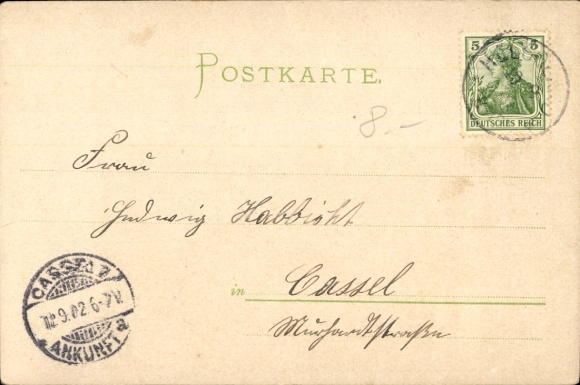 POSTKARTE.
5 5
DEUTSCHES REICH
8.-
Frau
Hedwig Habbicht
in Cassel
Murhardtstraße
CASSEL 7
9.02 6-7V.
* ANKUNFT a